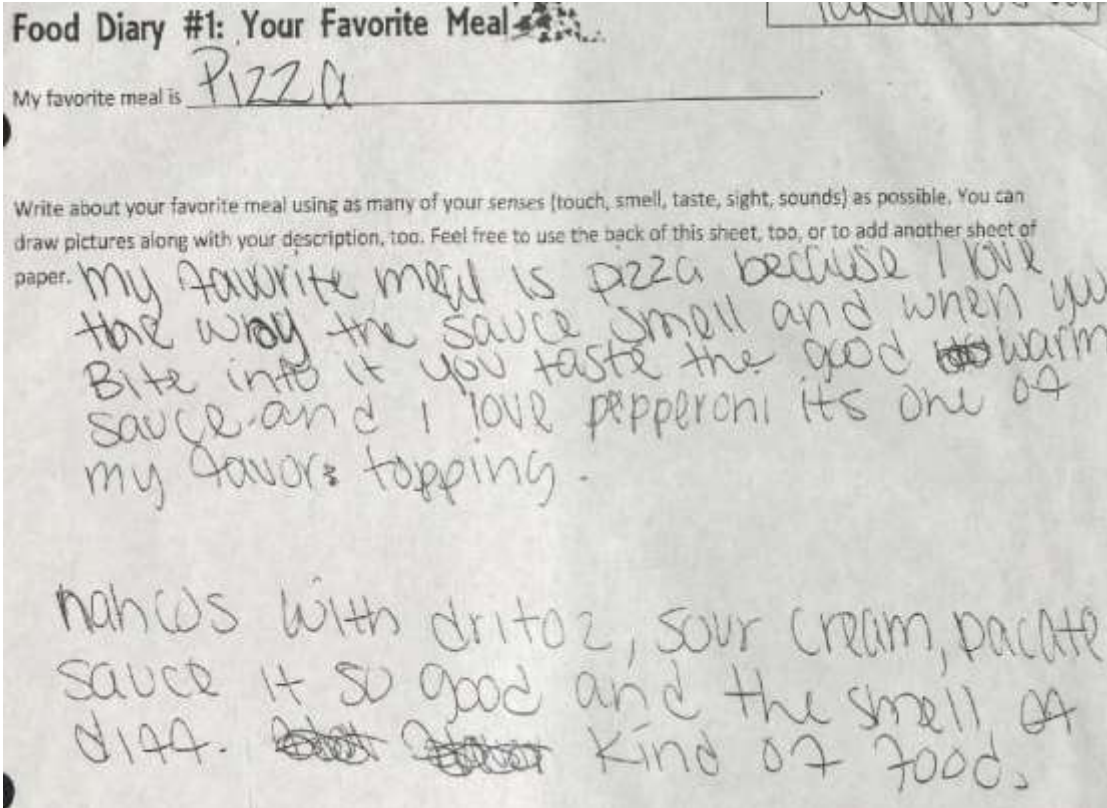 Food Diary #1: Your Favorite Meal
My favorite meal is Pizza.
Write about your favorite meal using as many of your senses (touch, smell, taste, sight, sounds) as possible. You can
draw pictures along with your description, too. Feel free to use the back of this sheet, too, or to add another sheet of
paper. My favorite meal is pizza because I love
the way the sauce smell and when you
Bite into it you taste the good warm
sauce and I love pepperoni its one of
my favors topping.
nahcos with dritoz, sour cream, pacate
sauce it so good and the smell of
diff. kind of food.